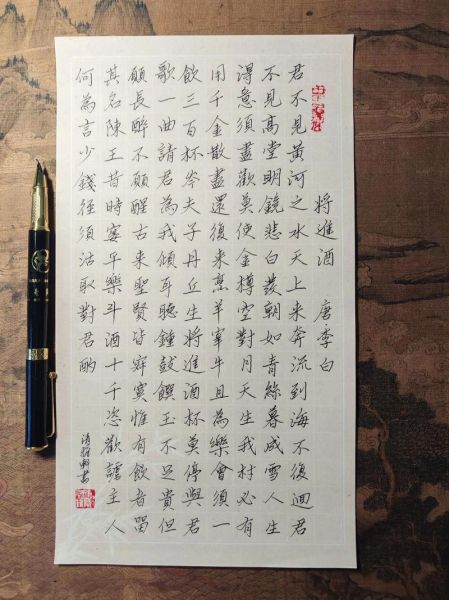 將進酒 唐李白
君不見黃河之水天上来奔流到海不復迴君
不見高堂明鏡悲白髮朝如青絲暮成雪人生
得意須盡歡莫使金樽空對月天生我材必有
用千金散盡還復来烹羊宰牛且為樂會須一
飲三百杯岑夫子丹丘生將進酒杯莫停與君
歌一曲請君為我傾耳聽鐘鼓饌玉不足貴但
願長醉不願醒古来聖賢皆寂寞惟有飲者留
其名陳王昔時宴平樂斗酒十千恣歡謔主人
何為言少錢徑須沽取對君酌